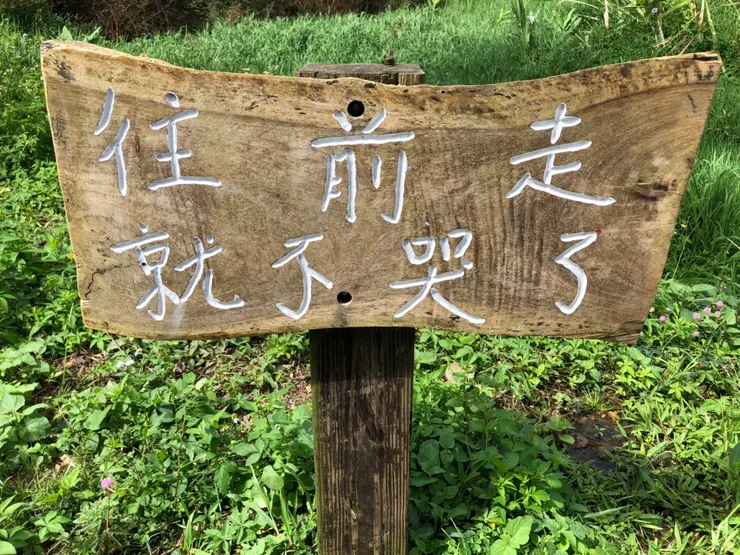 往前走
就不哭了